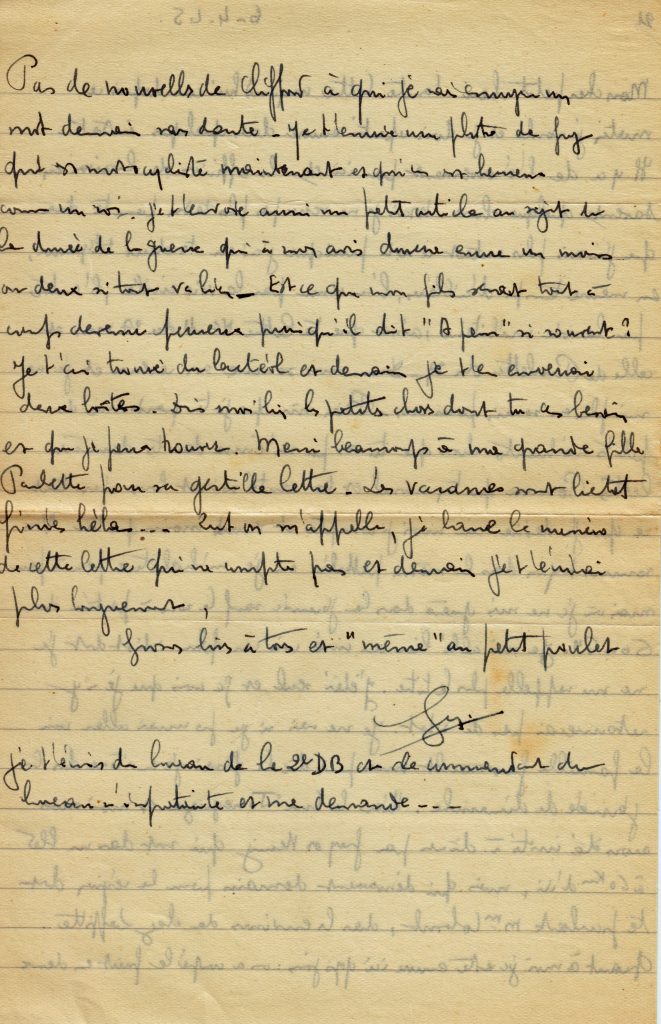 Pas de nouvelles de Clifford à qui j'ai envoyé un
mot demain sans doute - Je t'envoie une photo de Guy
qui est motocycliste maintenant et qui est heureux
comme un roi. Je t'envoie aussi un petit article au sujet de
la durée de la guerre qui à mon avis durera encore un mois
ou deux si tout va bien - Est ce que mon fils serait tout à
coup devenu paresseux puisqu'il dit "A peu" si souvent ?
Je t'ai trouvé du lactéol et demain je t'en enverrai
deux boîtes. Dis moi les petits choses dont tu as besoin
et que je peux trouver. Merci beaucoup à ma grande fille
Paulette pour sa gentille lettre - Les vacances sont bientot
finies hélas... Zut on m'appelle, je
de cette lettre qui ne compte pas et demain je t'écrirai
plus longuement,
Gros bis à tous et "même" au petit poulet
je t'écris du bureau de la 2e DB et le commandant du
bureau s'impatiente et me demande - - -